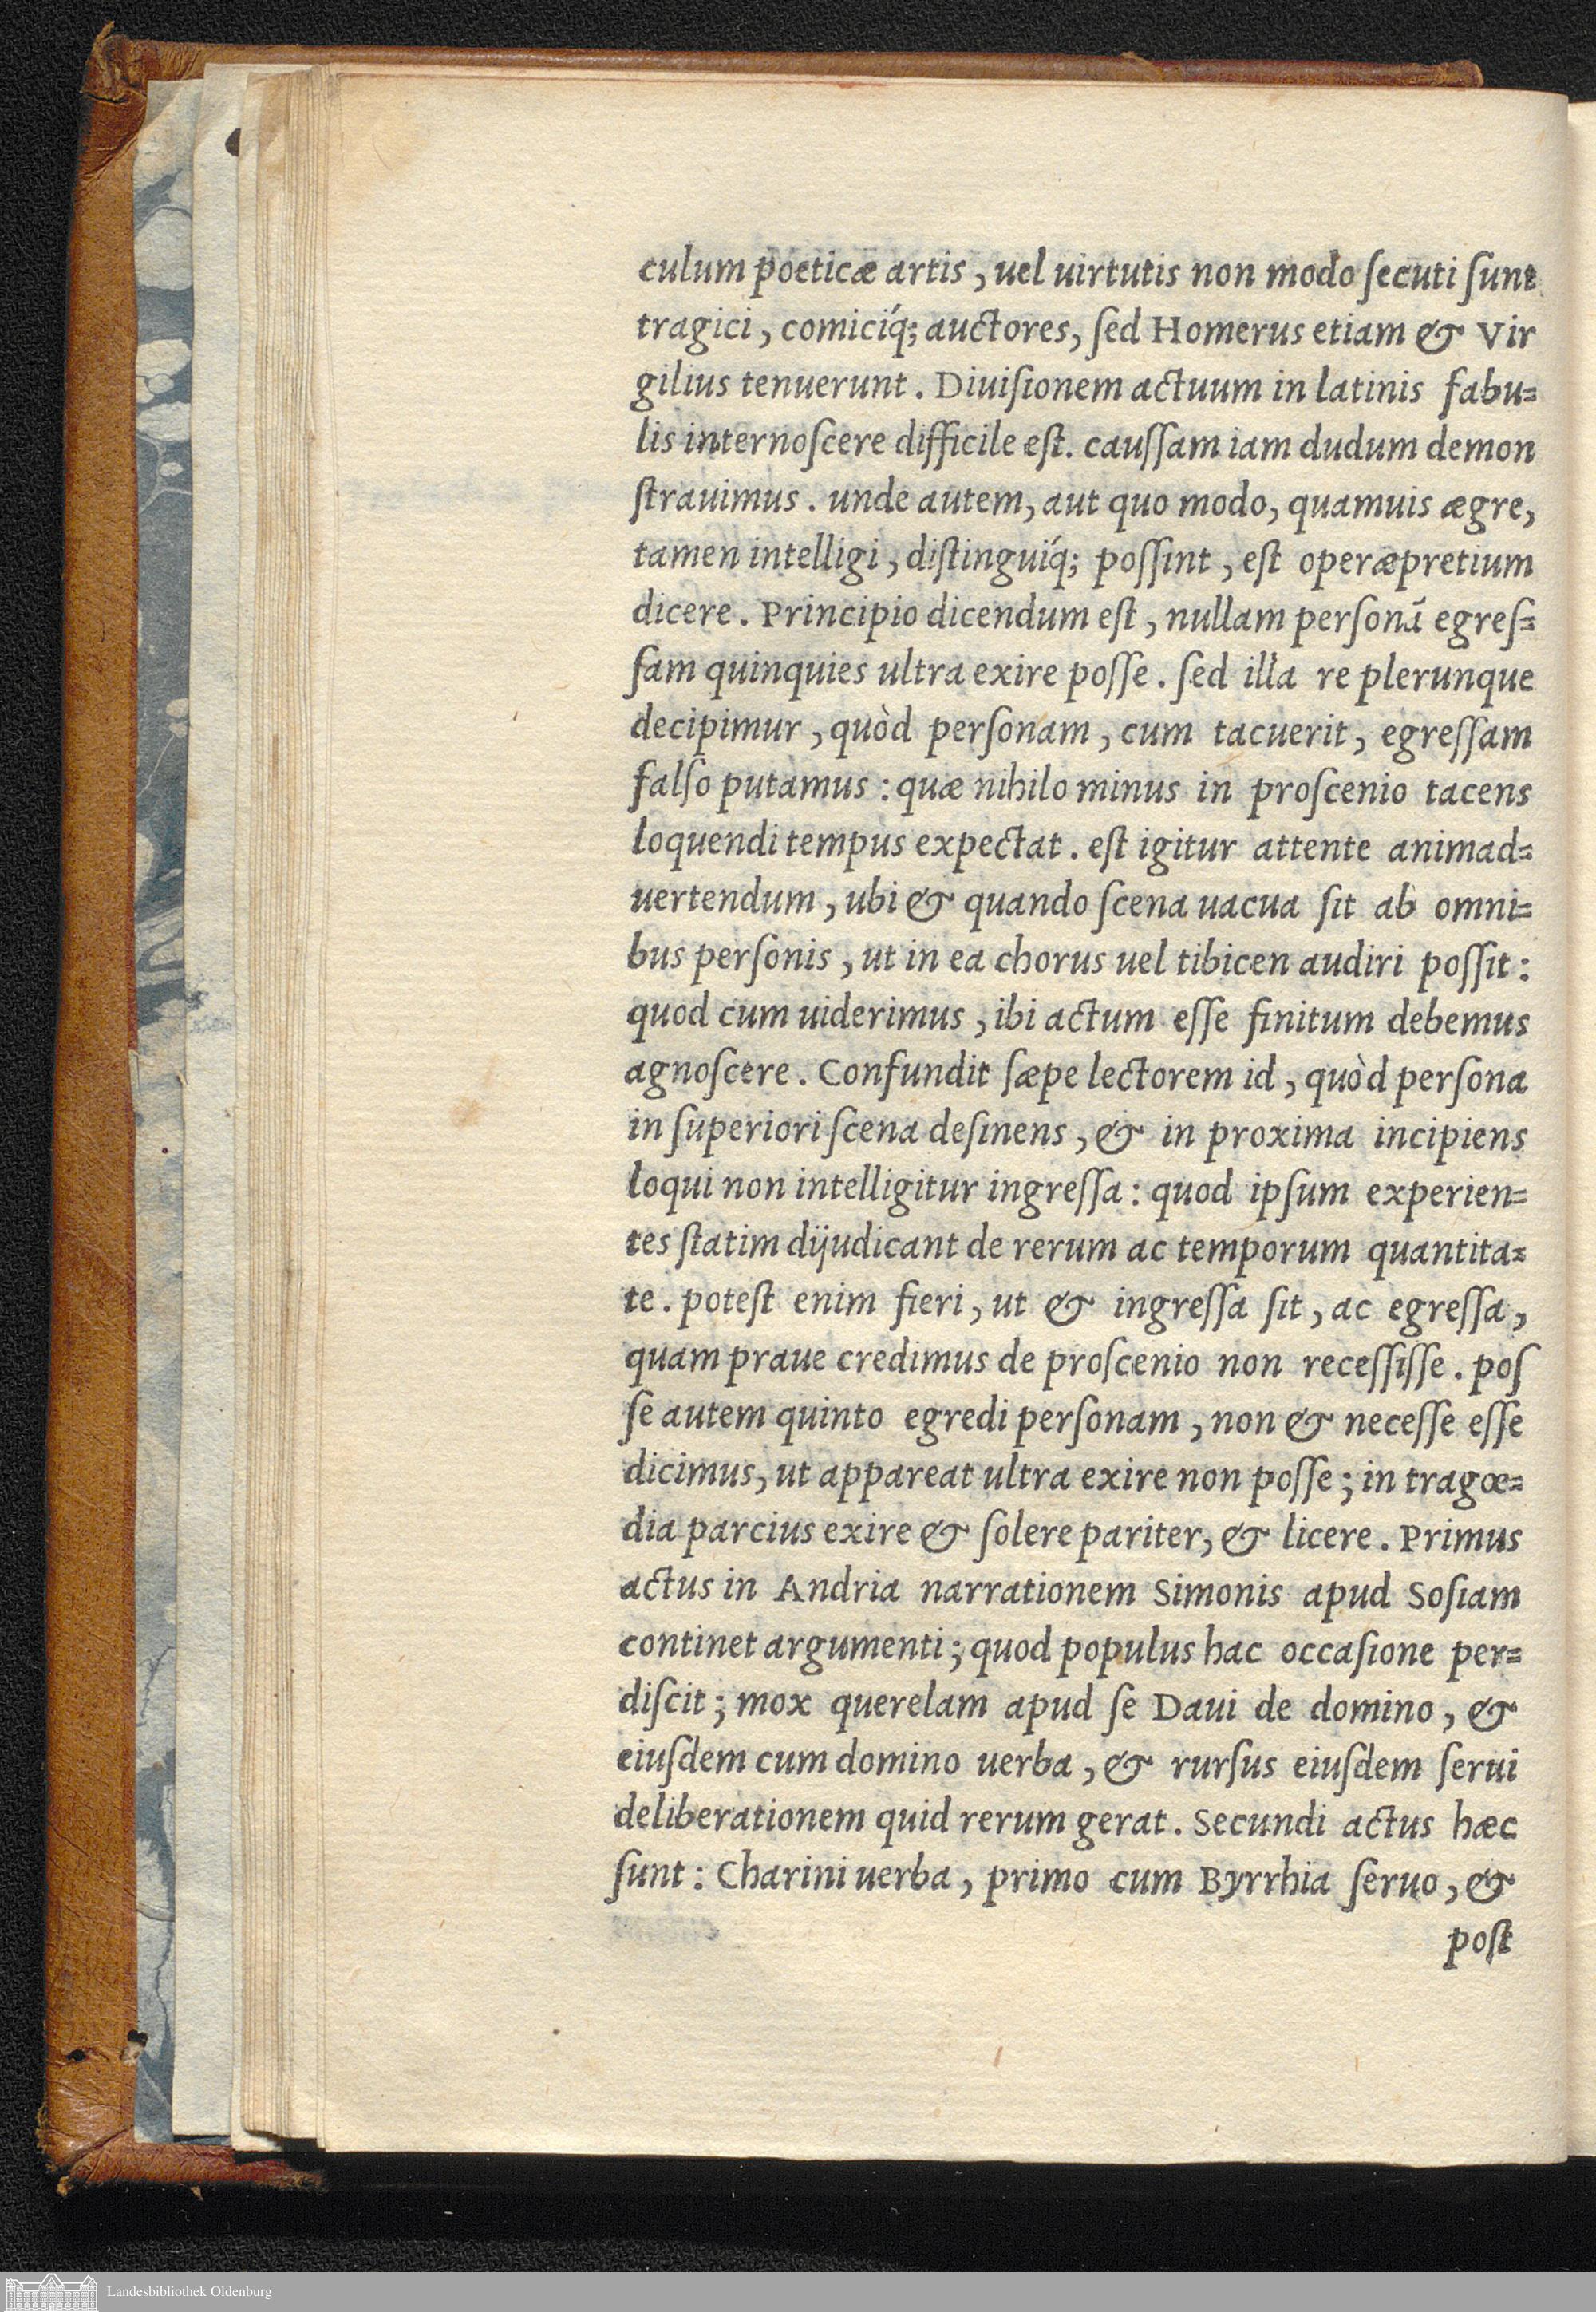 culum poeticæ artis, uel uirtutis non modo ſecuti ſunt
tragici, comiciq́; auctores, ſed Homerus etiam & Vir
gilius tenuerunt. Diuiſionem actuum in latinis fabu=
lis internoſcere difficile eſt. cauſſam iam dudum demon
ſtrauimus. unde autem, aut quo modo, quamuis ægre,
tamen intelligi, diſtinguiq́; poſſint, eſt operæpretium
dicere. Principio dicendum eſt, nullam perſonā egreſ=
ſam quinquies ultra exire poſſe. ſed illa re plerunque
decipimur, quòd perſonam, cum tacuerit, egreſſam
falſo putamus: quæ nihilo minus in proſcenio tacens
loquendi tempus expectat. eſt igitur attente animad=
uertendum, ubi & quando ſcena uacua ſit ab omni=
bus perſonis, ut in ea chorus uel tibicen audiri poſſit:
quod cum uiderimus, ibi actum eſſe finitum debemus
agnoſcere. Confundit ſæpe lectorem id, quòd perſona
in ſuperiori ſcena deſinens, & in proxima incipiens
loqui non intelligitur ingreſſa: quod ipſum experien=
tes ſtatim dijudicant de rerum ac temporum quantita=
te. poteſt enim fieri, ut & ingreſſa ſit, ac egreſſa,
quam praue credimus de proſcenio non receſſiſſe. poſ
ſe autem quinto egredi perſonam, non & neceſſe eſſe
dicimus, ut appareat ultra exire non poſſe; in tragœ=
dia parcius exire & ſolere pariter, & licere. Primus
actus in Andria narrationem Simonis apud Soſiam
continet argumenti; quod populus hac occaſione per=
diſcit; mox querelam apud ſe Daui de domino, &
eiuſdem cum domino uerba, & rurſus eiuſdem ſerui
deliberationem quid rerum gerat. Secundi actus hæc
ſunt: Charini uerba, primo cum Byrrhia ſeruo, &
poſt
Landesbibliothek Oldenburg